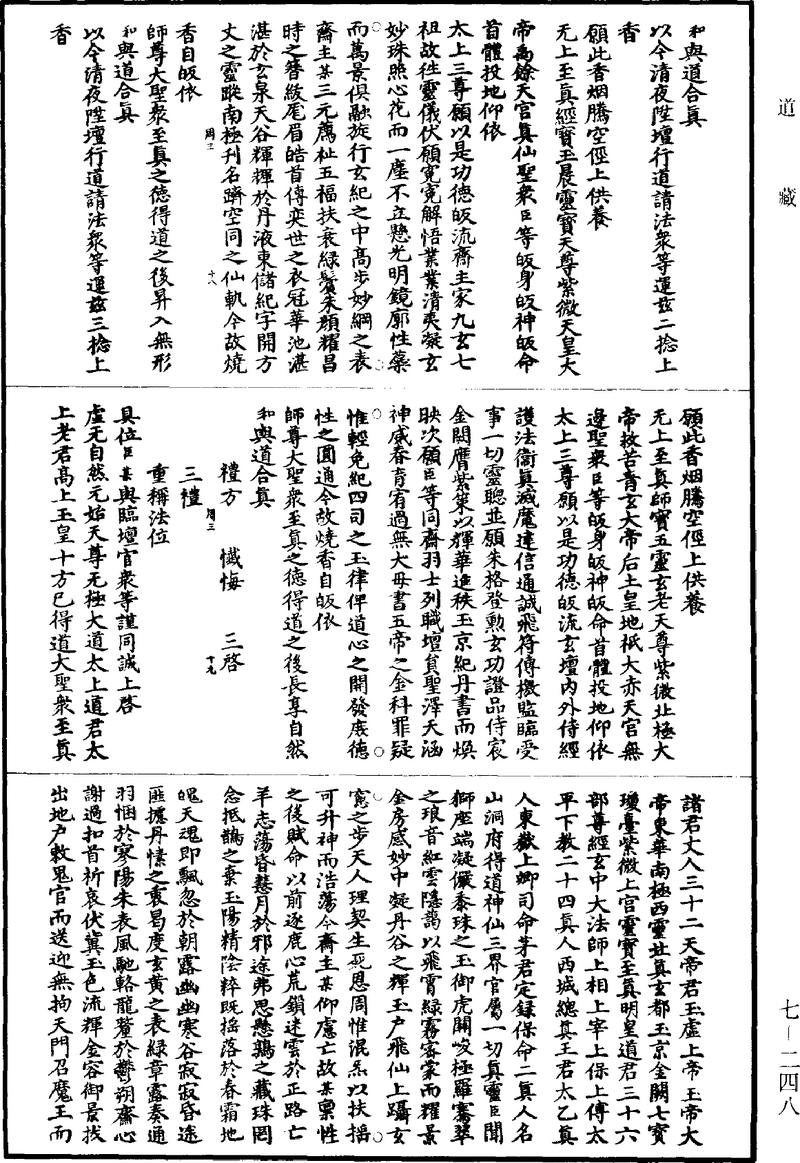 道藏
和與道合眞
以今清夜陞壇行道請法衆等運玆二捻上
香
願此香烟騰空徑上供養
无上至眞經寶玉晨靈寶天尊紫微天皇大
帝禹餘天官眞仙聖衆臣等皈身皈神皈命
首體投地仰依
太上三尊願以是功德皈流齋主家九玄七
祖故甡靈儀伏願寃寃解悟業業清夷凝玄
妙珠照心花而一塵不立懸光明鏡廓性藥
而萬景俱融旋行玄紀之中高步妙綱之表
齋主某三元薦祉五福扶衰綠鬢朱顏耀昌
時之簪紱厖眉皓首傳奕世之衣冠華池湛
湛於玄泉天谷輝輝於丹液東儲紀字開方
丈之靈蹤南極刊名躋空同之仙軌今故燒
香自皈依
師尊大聖衆至眞之德得道之後昇入無形
和與道合眞
以今清夜陞壇行道請法衆等運玆三捻上
香
周三
十八
願此香烟騰空徑上供養
无上至眞師寶五靈玄老天尊紫微北極大
帝救苦青玄大帝后土皇地祇大赤天官無
邊聖衆臣等皈身皈神皈命首體投地仰依
太上三尊願以是功德皈流玄壇內外侍經
護法衛眞滅魔建信通誠飛符傳檄監臨受
事一切靈聰並願朱格登勳玄功證品侍宸
金闕膺紫策以輝華進秩玉京紀丹書而煥
映次願臣等同齋羽士列職壇員聖澤天涵
神威春育宥過無大毋書五帝之金科罪疑
惟輕免紀四司之玉律俾道心之開發底德
性之圓通今故燒香自皈依
師尊大聖衆至眞之德得道之後長享自然
和與道合眞
禮方 懺悔 三啓
三禮
重稱法位
具位臣某與臨壇官衆等謹同誠上啓
虛元自然元始天尊无極大道太上道君太
上老君高上玉皇十方已得道大聖衆至眞
周三
十九
諸君丈人三十二天帝君玉虛上帝玉帝大
帝東華南極西靈北眞玄都玉京金闕七寶
瓊臺紫微上宮靈寶至眞明皇道君三十六
部尊經玄中大法師上相上宰上保上傅太
平下教二十四眞人西城總眞王君太乙眞
人東嶽上卿司命茅君定錄保命二眞人名
山洞府得道神仙三界官屬一切眞靈臣聞
獅座端凝儼黍珠之玉御虎關峻極羅騫翠
之琅音紅雲隱藹以飛霄綠霧密蒙而耀景
金房感妙中凝丹谷之輝玉户飛仙上躡玄
窻之步天人理契生死恩周惟混系以扶搖
可升神而浩蕩今齋主某仰慮亡故某稟性
之後賦命以前逐鹿心荒鎖迷雲於正路亡
羊志蕩昏慧月於邪途弗思懸鶉之藏珠罔
念抵鵲之棄玉陽精陰粹既搖落於春霜地
魄天魂即飄忽於朝露幽幽寒谷寂寂昏途
匪攄丹愫之衷曷度玄黄之表綠章露奏通
羽悃於寒陽朱表風馳輅龍鶩於鬱朔齋心
謝過扣首祈哀伏冀玉色流輝金容御景拔
出地户敕鬼官而送迎無拘天門召魔王而
七一二四八